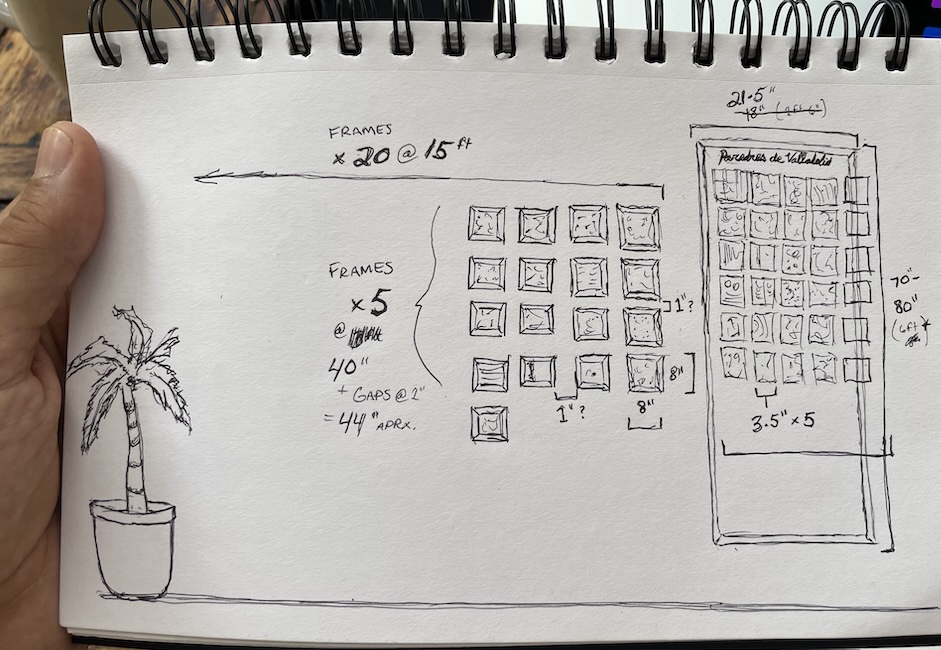 FRAMES
x 20 @ 15 ft
FRAMES
x 5
@
40"
+ GAPS @ 1"
= 44" APRX.
1"?
1"?
8"
8"
21.5"
18"
Paredres de Valladolid
70"-
80"
(6ft
3.5" x 5